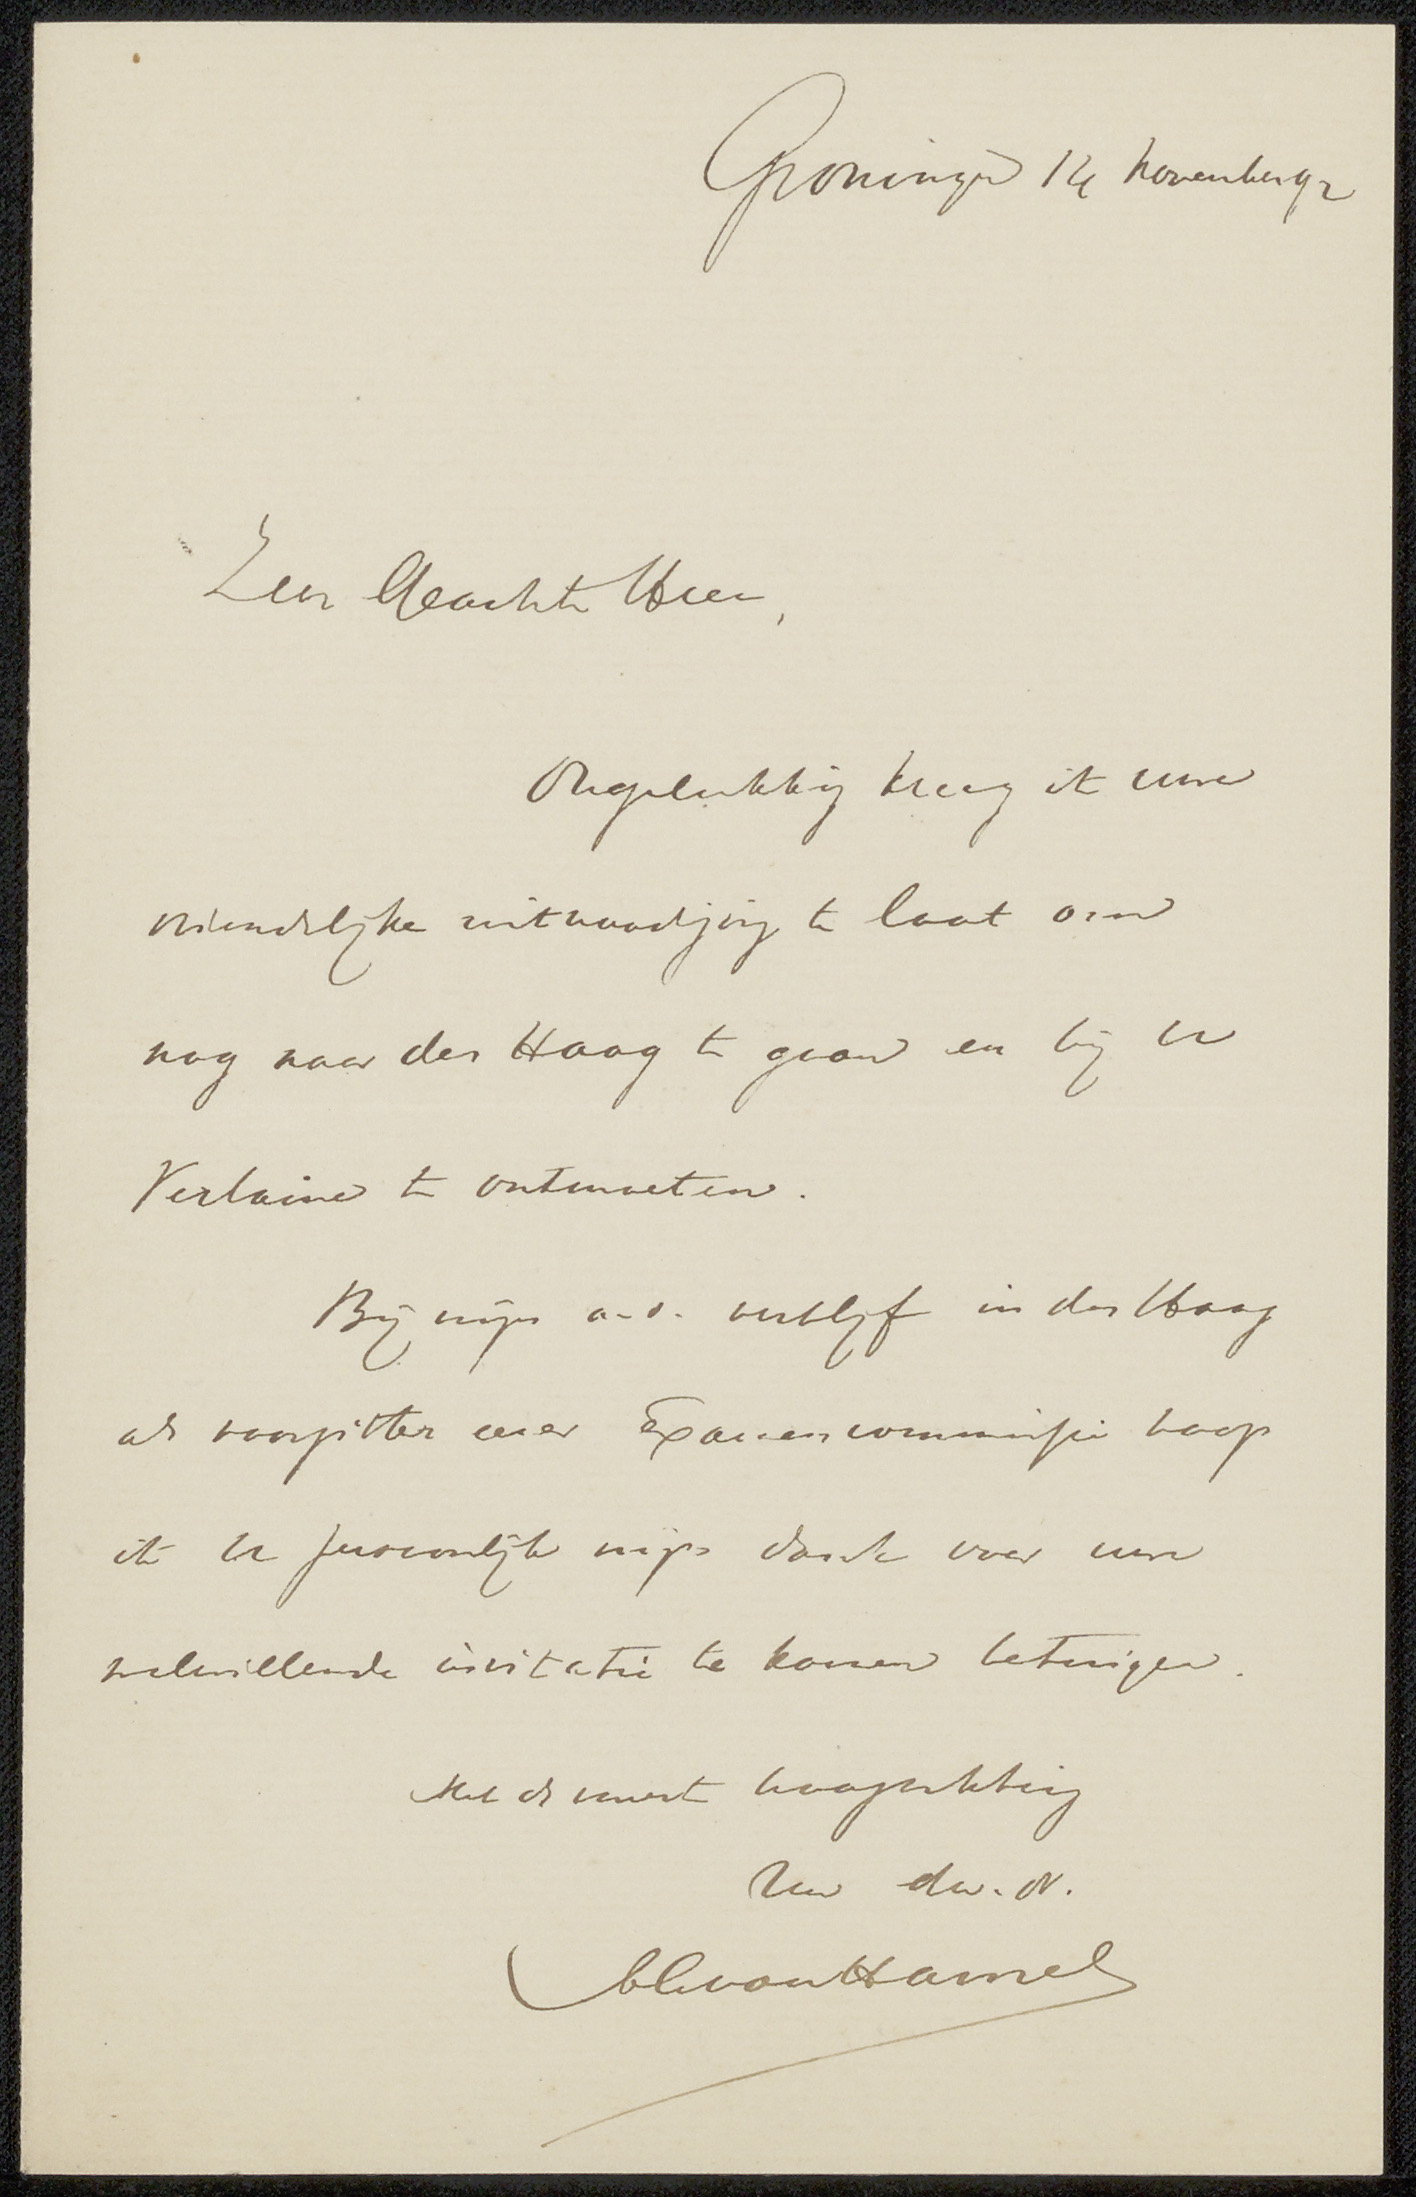 Groningen 14 November 92
Zeer Geachte Heer,
Ongelukkig kreeg ik uwe
vriendelijke uitnoodiging te laat om
nog naar den Haag te gaan en bij U
Verlaine te ontmoeten.
Bij mijn a.s. verblijf in den Haag
als voorzitter eener Examencommissie hoop
ik U persoonlijk mijn dank voor uwe
welwillende invitatie te komen betuigen.
Met de meeste hoogachting
Uw dw. dr.
AG van Hamel